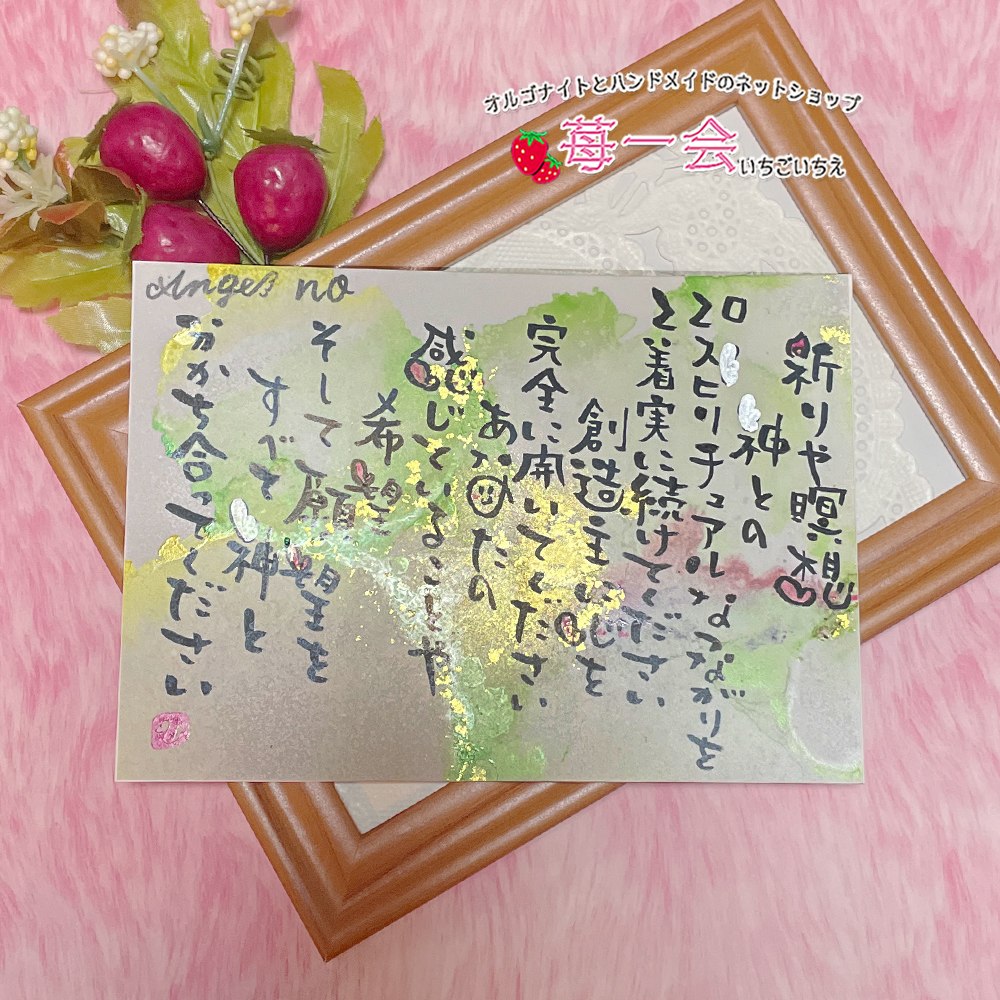 オルゴナイトとハンドメイドのネットショップ
苺一会
いちごいちえ
Angel no
祈りや瞑想
神との
スピリチュアルなつながりを
着実に続けてください
創造主に心を
完全に開いてください
あなたの
感じていることや
希望
そして願望を
すべて神と
分かち合ってください